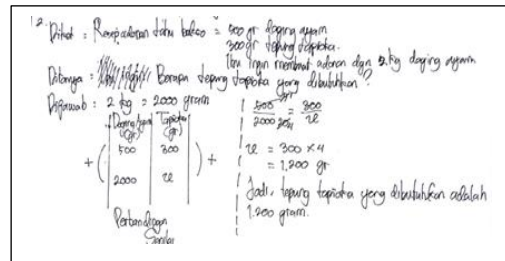 12. Diket : Resep adonan tahu bakso = 500 gr daging ayam
300 gr tepung tapioka.
Ibu ingin membuat adonan dgn 2 kg daging ayam
Ditanya : Berapa tepung tapioka yang dibutuhkan?
Dijawab : 2 kg = 2000 gram
Daging Ayam (gr) | Tapioka (gr)
500 | 300
2000 | x
+ ( ) +
Perbandingan
Senilai
500/2000 = 300/x
x = 300 x 4
= 1.200 gr
Jadi, tepung tapioka yang dibutuhkan adalah
1.200 gram.